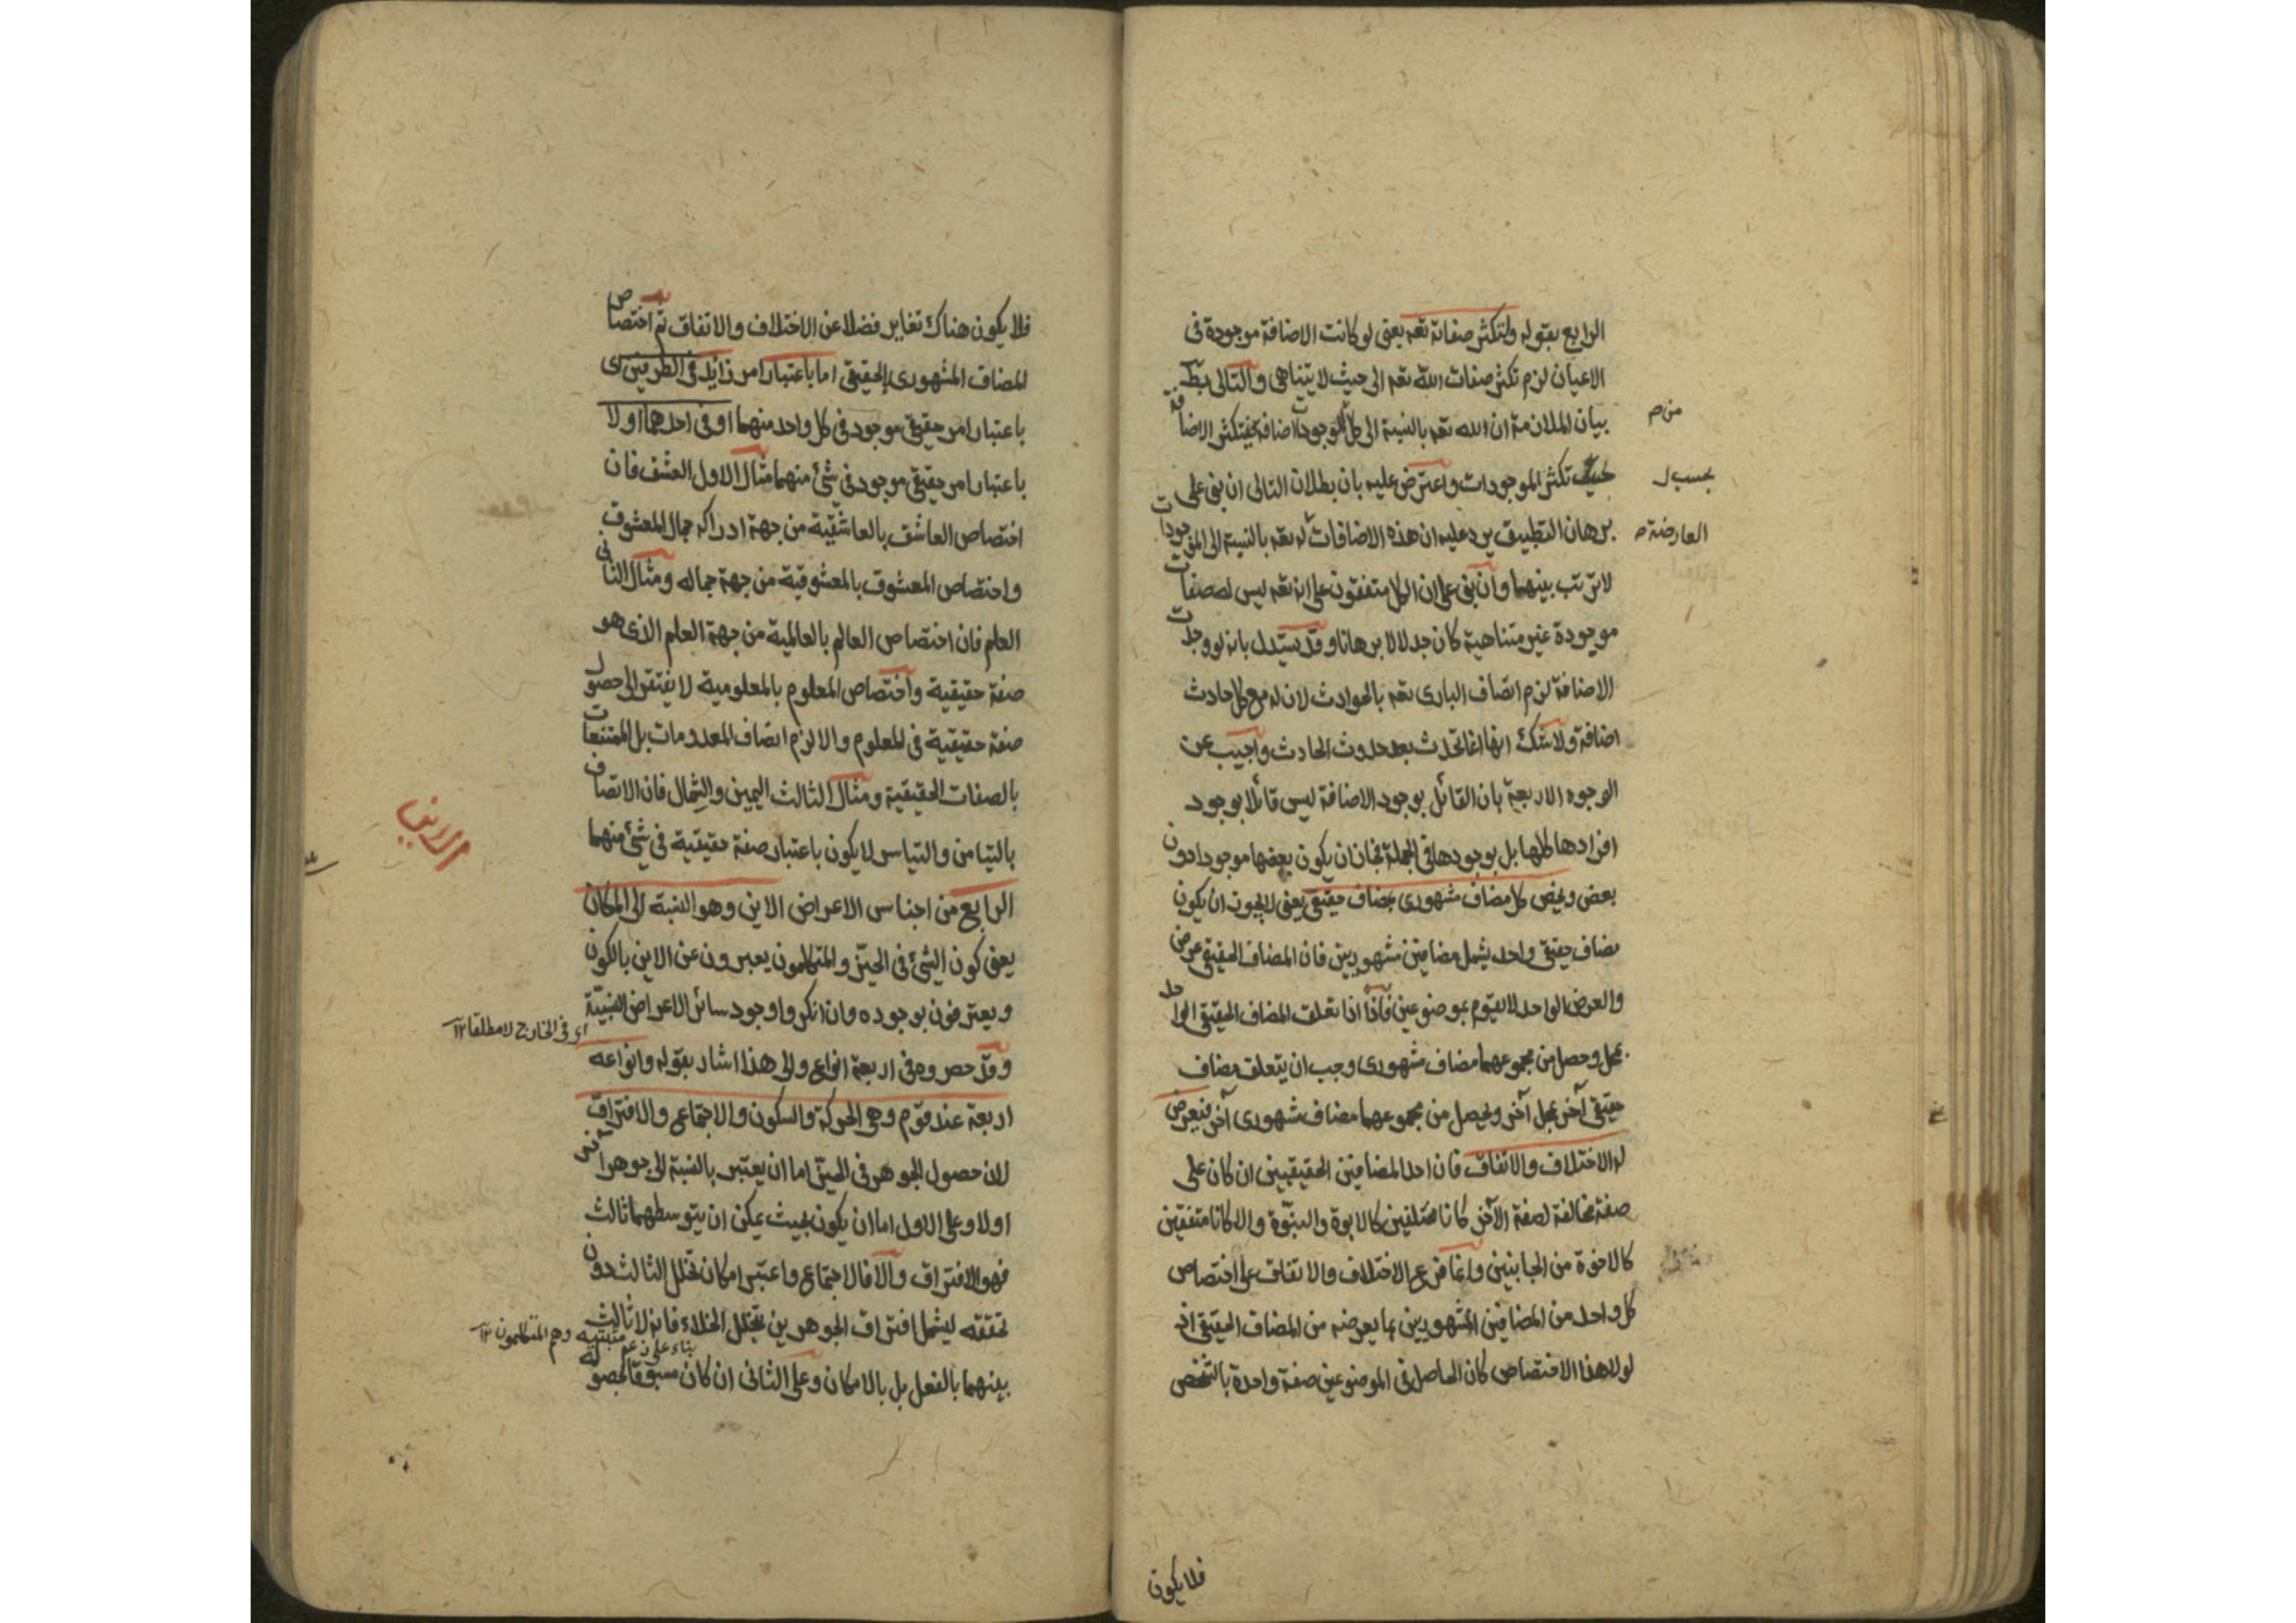 الرابع بقوله ولتكثر صفاته تعه يعنى لو كانت الاضافة موجودة فى
الاعيان لزم تكثر صفات الله تعه الى حيث لا يتناهى والتالى بط
بيان الملازمة ان الله تعه بالنسبة الى كل الموجودات اضافة فيتكثر الاضافة
تكثر الموجودات واعترض عليه بان بطلان التالى ان بنى على
بحسب
برهان التطبيق يرد عليه ان هذه الاضافات له تعه بالنسبة الى الموجودات
العارضة
لا ترتب بينهما وان بنى على ان الكل متفقون على انه تعه ليس له صفات
موجودة غير متناهية كان جدلا لا برهانا وقد يستدل بانه لو وجدت
الاضافة لزم اتصاف البارى تعه بالحوادث لان له مع كل حادث
اضافة ولا شك انها انما تحدث بعد حدوث الحادث واجيب عن
الوجوه الاربعة بان القائل بوجود الاضافة ليس قائلا بوجود
افرادها كلها بل بوجودها فى الجملة فجاز ان يكون بعضها موجودا دون
بعض ويخص كل مضاف مشهورى بمضاف حقيقى يعنى لا يجوز ان يكون
مضاف حقيقى واحد يشمل مضافين مشهوريين فان المضاف الحقيقى عرض
والعرض الواحد لا يقوم بموضوعين فاذا اذا تعلق المضاف الحقيقى الواحد
بمحل وحصل من مجموعهما مضاف مشهورى وجب ان يتعلق مضاف
حقيقى آخر بمحل آخر ويحصل من مجموعهما مضاف مشهورى آخر فيعرض
له الاختلاف والاتفاق فان احد المضافين الحقيقيين ان كان على
صفة مخالفة لصفة الآخر كانا مختلفين كالابوة والبنوّة والا كانا متفقين
كالاخوة من الجانبين وانما فرع الاختلاف والاتفاق على اختصاص
كل واحد من المضافين المشهوريين بما يعرضه من المضاف الحقيقى اذ
لولا هذا الاختصاص كان الحاصل فى الموضوعين صفة واحدة بالشخص
فلا يكون
فلا يكون هناك تغاير فضلا عن الاختلاف والاتفاق ثم اختصاص
المضاف المشهورى بالحقيقى اما باعتبار امر زائد فى الطرفين اى
باعتبار امر حقيقى موجود فى كل واحد منهما او فى احدهما او لا
باعتبار امر حقيقى موجود فى شئ منهما مثال الاول العشق فان
اختصاص العاشق بالعاشقية من جهة ادراكه جمال المعشوق
واختصاص المعشوق بالمعشوقية من جهة جماله ومثال الثانى
العلم فان اختصاص العالم بالعالمية من جهة العلم الذى هو
صفة حقيقية واختصاص المعلوم بالمعلومية لا يفتقر الى حصول
صفة حقيقية فى المعلوم والا لزم اتصاف المعدومات بل الممتنعات
بالصفات الحقيقية ومثال الثالث اليمين والشمال فان الاتصاف
بالتيامن والتياسر لا يكون باعتبار صفة حقيقية فى شئ منهما
الاين
الرابع من اجناس الاعراض الاين وهو النسبة الى المكان
يعنى كون الشئ فى الحيز والمتكلمون يعبرون عن الاين بالكون
ويعترفون بوجوده وان انكروا وجود سائر الاعراض النسبيّة
اى فى الخارج لا مطلقا ١٢
وقد حصروه فى اربعة انواع والى هذا اشار بقوله وانواعه
اربعة عند قوم وهى الحركة والسكون والاجتماع والافتراق
لان حصول الجوهر فى الحيز اما ان يعتبر بالنسبة الى جوهر آخر
او لا وعلى الاول اما ان يكون بحيث يمكن ان يتوسطهما ثالث
فهو الافتراق والا فالاجتماع واعتبر امكان تخلل الثالث دون
تحققه ليشمل افتراق الجوهرين بتخلل الخلاء فانه لا ثالث
بناء على زعم مثبتيه وهم المتكلمون ١٢
بينهما بالفعل بل بالامكان وعلى الثانى ان كان مسبوقا بحصوله